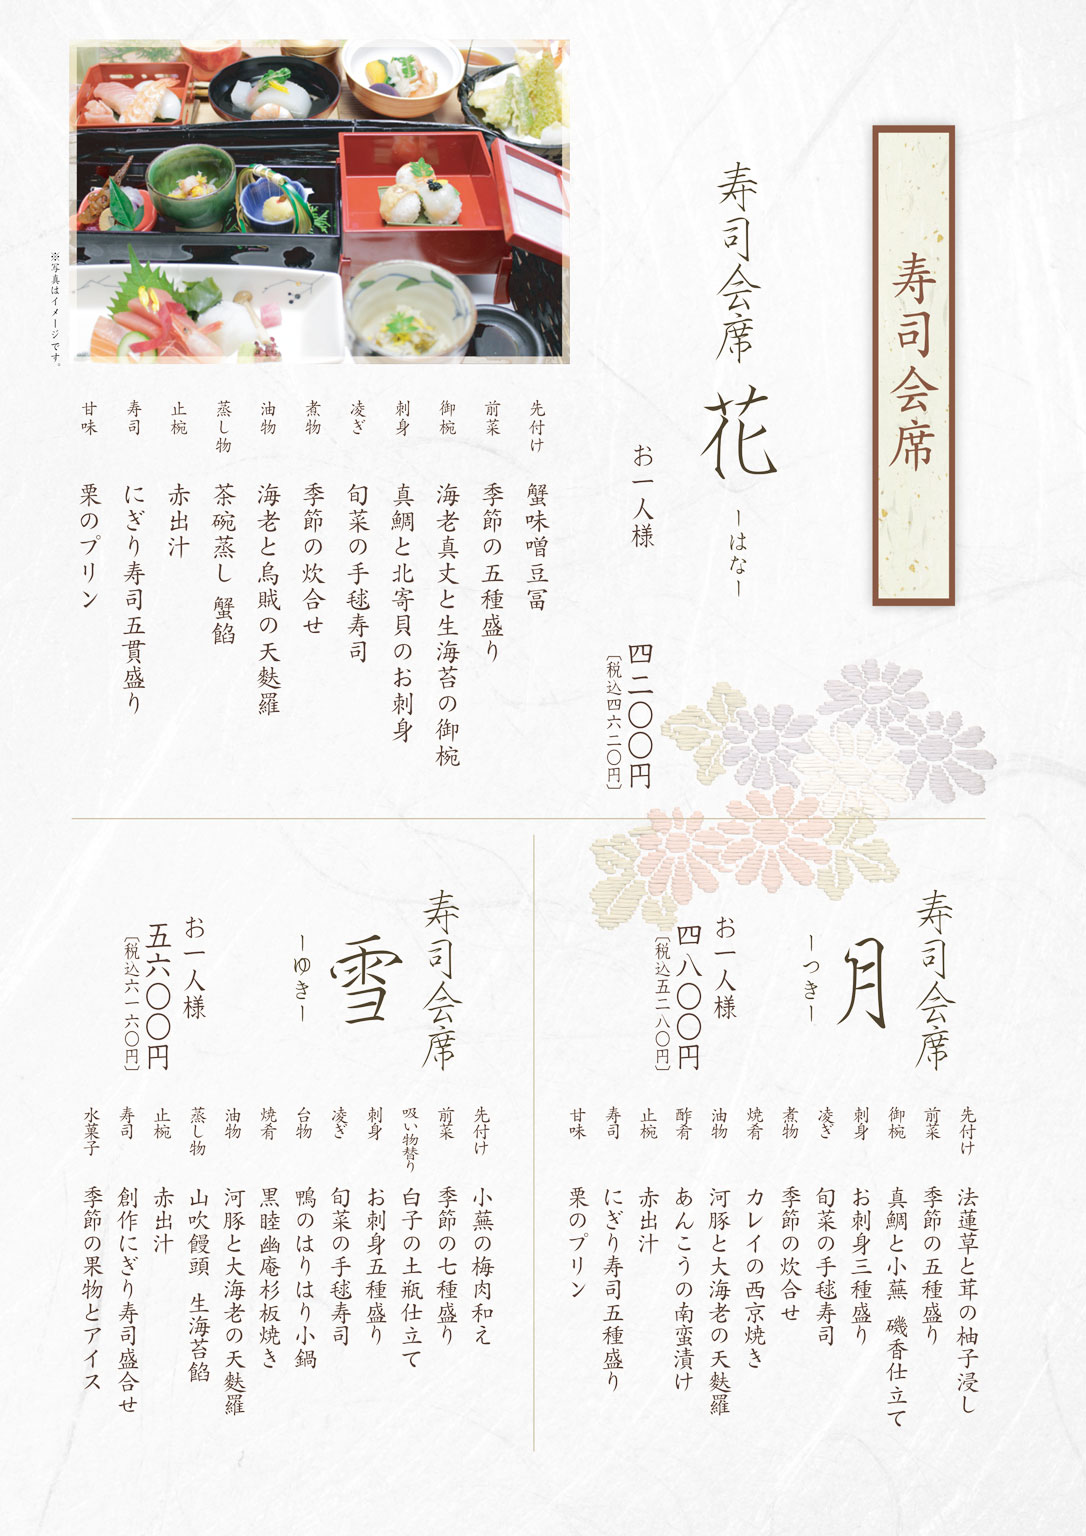 寿司会席
寿司会席 花 ーはなー
お一人様
四二〇〇円
〔税込四六二〇円〕
先付け 蟹味噌豆冨
前菜 季節の五種盛り
御椀 海老真丈と生海苔の御椀
刺身 真鯛と北寄貝のお刺身
凌ぎ 旬菜の手毬寿司
煮物 季節の炊合せ
油物 海老と烏賊の天麩羅
蒸し物 茶碗蒸し 蟹餡
止椀 赤出汁
寿司 にぎり寿司五貫盛り
甘味 栗のプリン
※写真はイメージです。
寿司会席
月
ーつきー
お一人様
四八〇〇円
〔税込五二八〇円〕
先付け 法蓮草と茸の柚子浸し
前菜 季節の五種盛り
御椀 真鯛と小蕪 磯香仕立て
刺身 お刺身三種盛り
凌ぎ 旬菜の手毬寿司
煮物 季節の炊合せ
焼肴 カレイの西京焼き
油物 河豚と大海老の天麩羅
酢肴 あんこうの南蛮漬け
止椀 赤出汁
寿司 にぎり寿司五種盛り
甘味 栗のプリン
寿司会席
雪
ーゆきー
お一人様
五六〇〇円
〔税込六一六〇円〕
先付け 小蕪の梅肉和え
前菜 季節の七種盛り
吸い物替り 白子の土瓶仕立て
刺身 お刺身五種盛り
凌ぎ 旬菜の手毬寿司
台物 鴨のはりはり小鍋
焼肴 黒睦幽庵杉板焼き
油物 河豚と大海老の天麩羅
蒸し物 山吹饅頭 生海苔餡
止椀 赤出汁
寿司 創作にぎり寿司盛合せ
水菓子 季節の果物とアイス